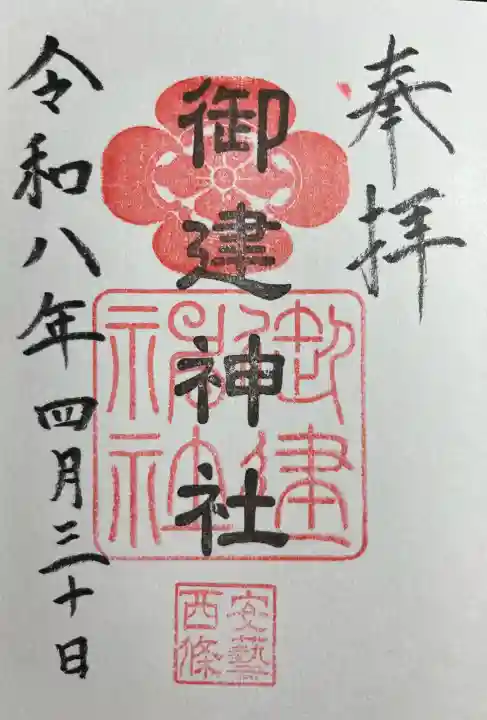 奉拝
御建神社
御建神社
安藝西條
令和八年四月三十日